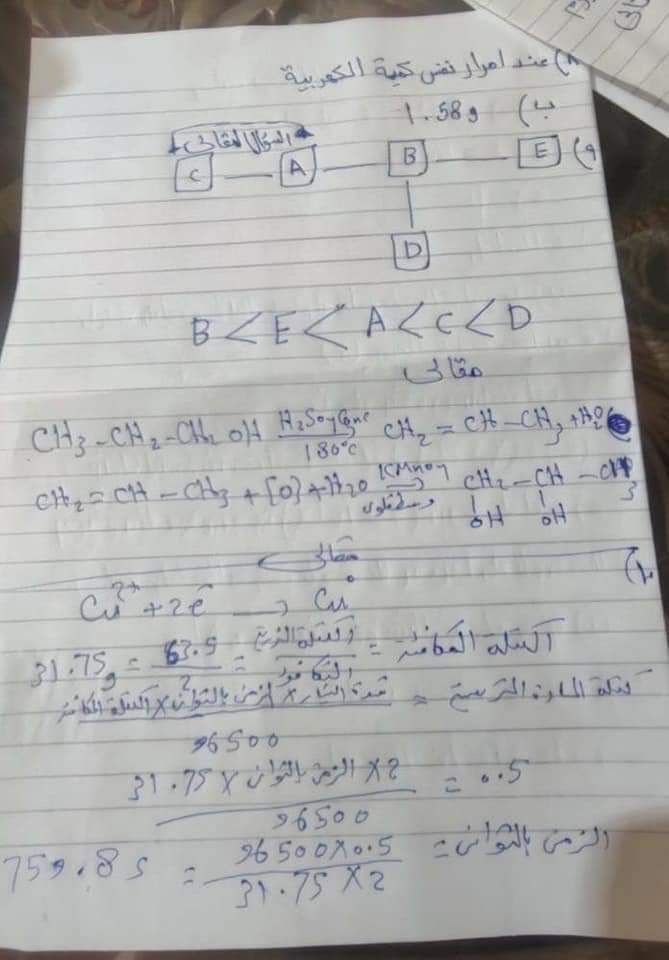 ٨) عند امرار نفس كمية الكهربية
ب) 1.58g
السؤال المقالى
و) C — A — B — E
D
B < E < A < C < D
مقالى
CH3-CH2-CH2OH H2SO4 Conc 180°C CH2=CH-CH3 + H2O
CH2=CH-CH3 + [O] + H2O KMnO4 وسط قلوى CH2-CH-CH3
OH OH
مقالى
١٠)
Cu2+ + 2e⁻ → Cu°
الكتلة المكافئة = الكتلة الذرية / التكافؤ = 63.5 / 2 = 31.75g
كتلة المادة المترسبة = شدة التيار × الزمن بالثوانى × الكتلة المكافئة
96500
0.5 = 31.75 × الزمن بالثوانى × 2
96500
الزمن بالثوانى = 96500×0.5 / 31.75×2 = 759.8 s